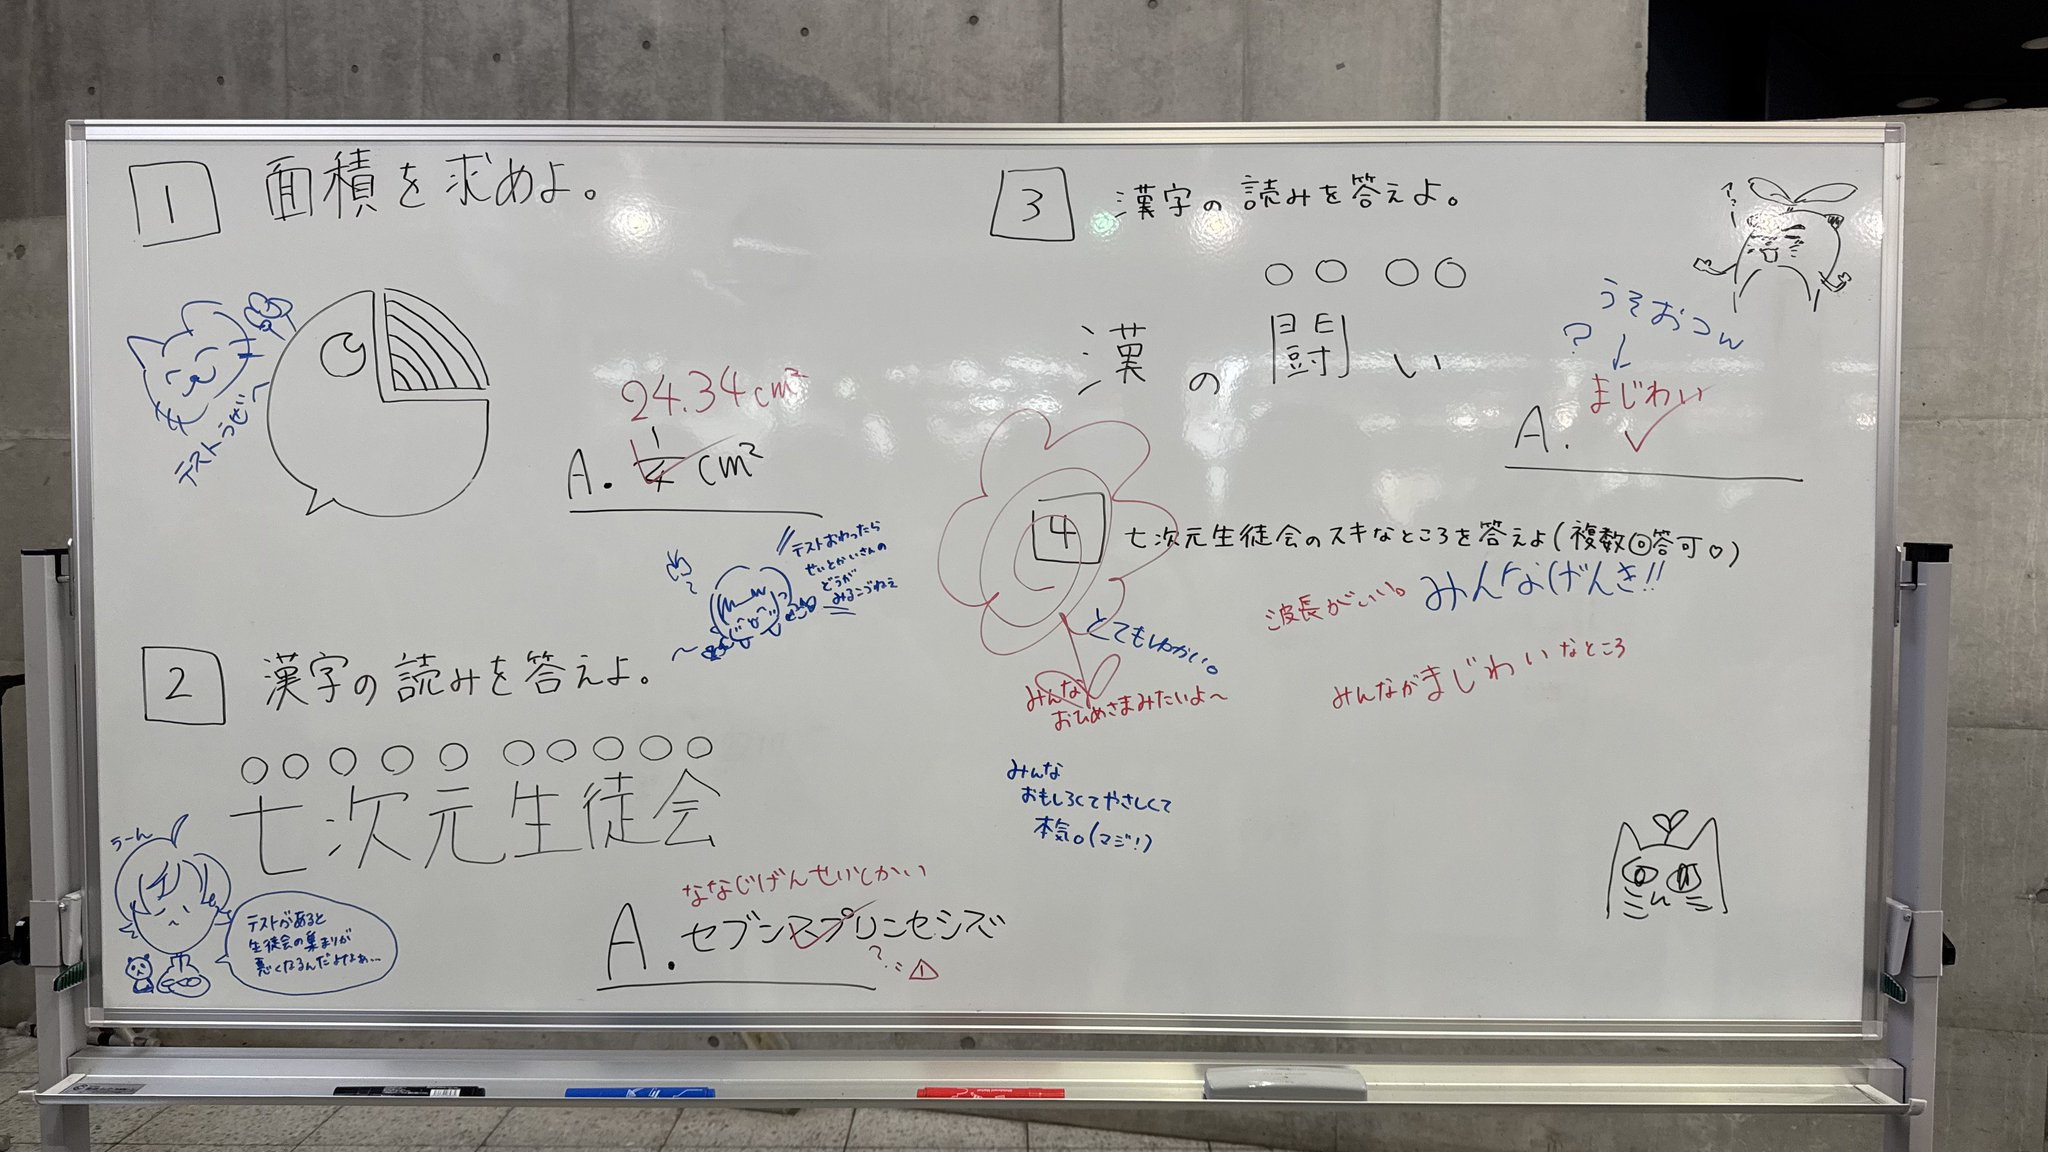 1 面積を求めよ。
テストうぜ〜
24.34cm²
A. 1/4 cm²
テストおわったら
せいとかいさんの
どうが
みるこづねぇ
2 漢字の読みを答えよ。
○○○○○ ○○○○○
七次元生徒会
うーん
テストがあると
生徒会の集まりが
悪くなるんだよなぁ…
ななじげんせいとかい
A. セブンスプリンセシズ
?
3 漢字の読みを答えよ。
○○ ○○
漢の闘い
うそおつw
?
まじわい
A.
4 七次元生徒会のスキなところを答えよ(複数回答可♡)
波長がいい。
みんなげんき!!
とてもゆかい。
みんながまじわいなところ
みんな
おひめさまみたいよ〜
みんな
おもしろくてやさしくて
本気。(マジ!)